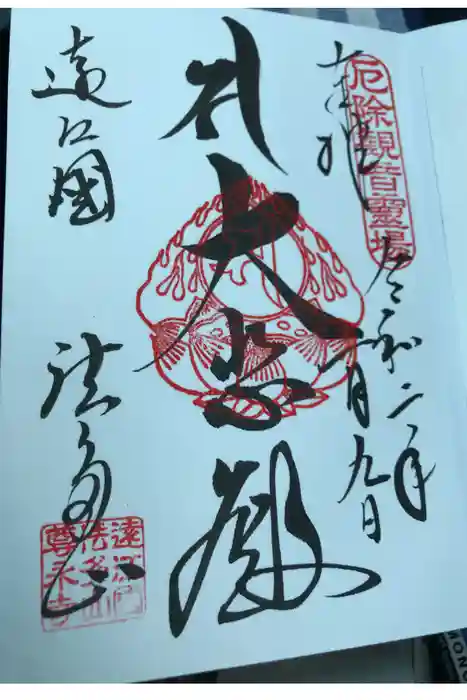 厄除觀音靈場
奉拝
令和二年
二月九日
大悲殿
遠江國
法多山
遠江國
法多山
尊永寺